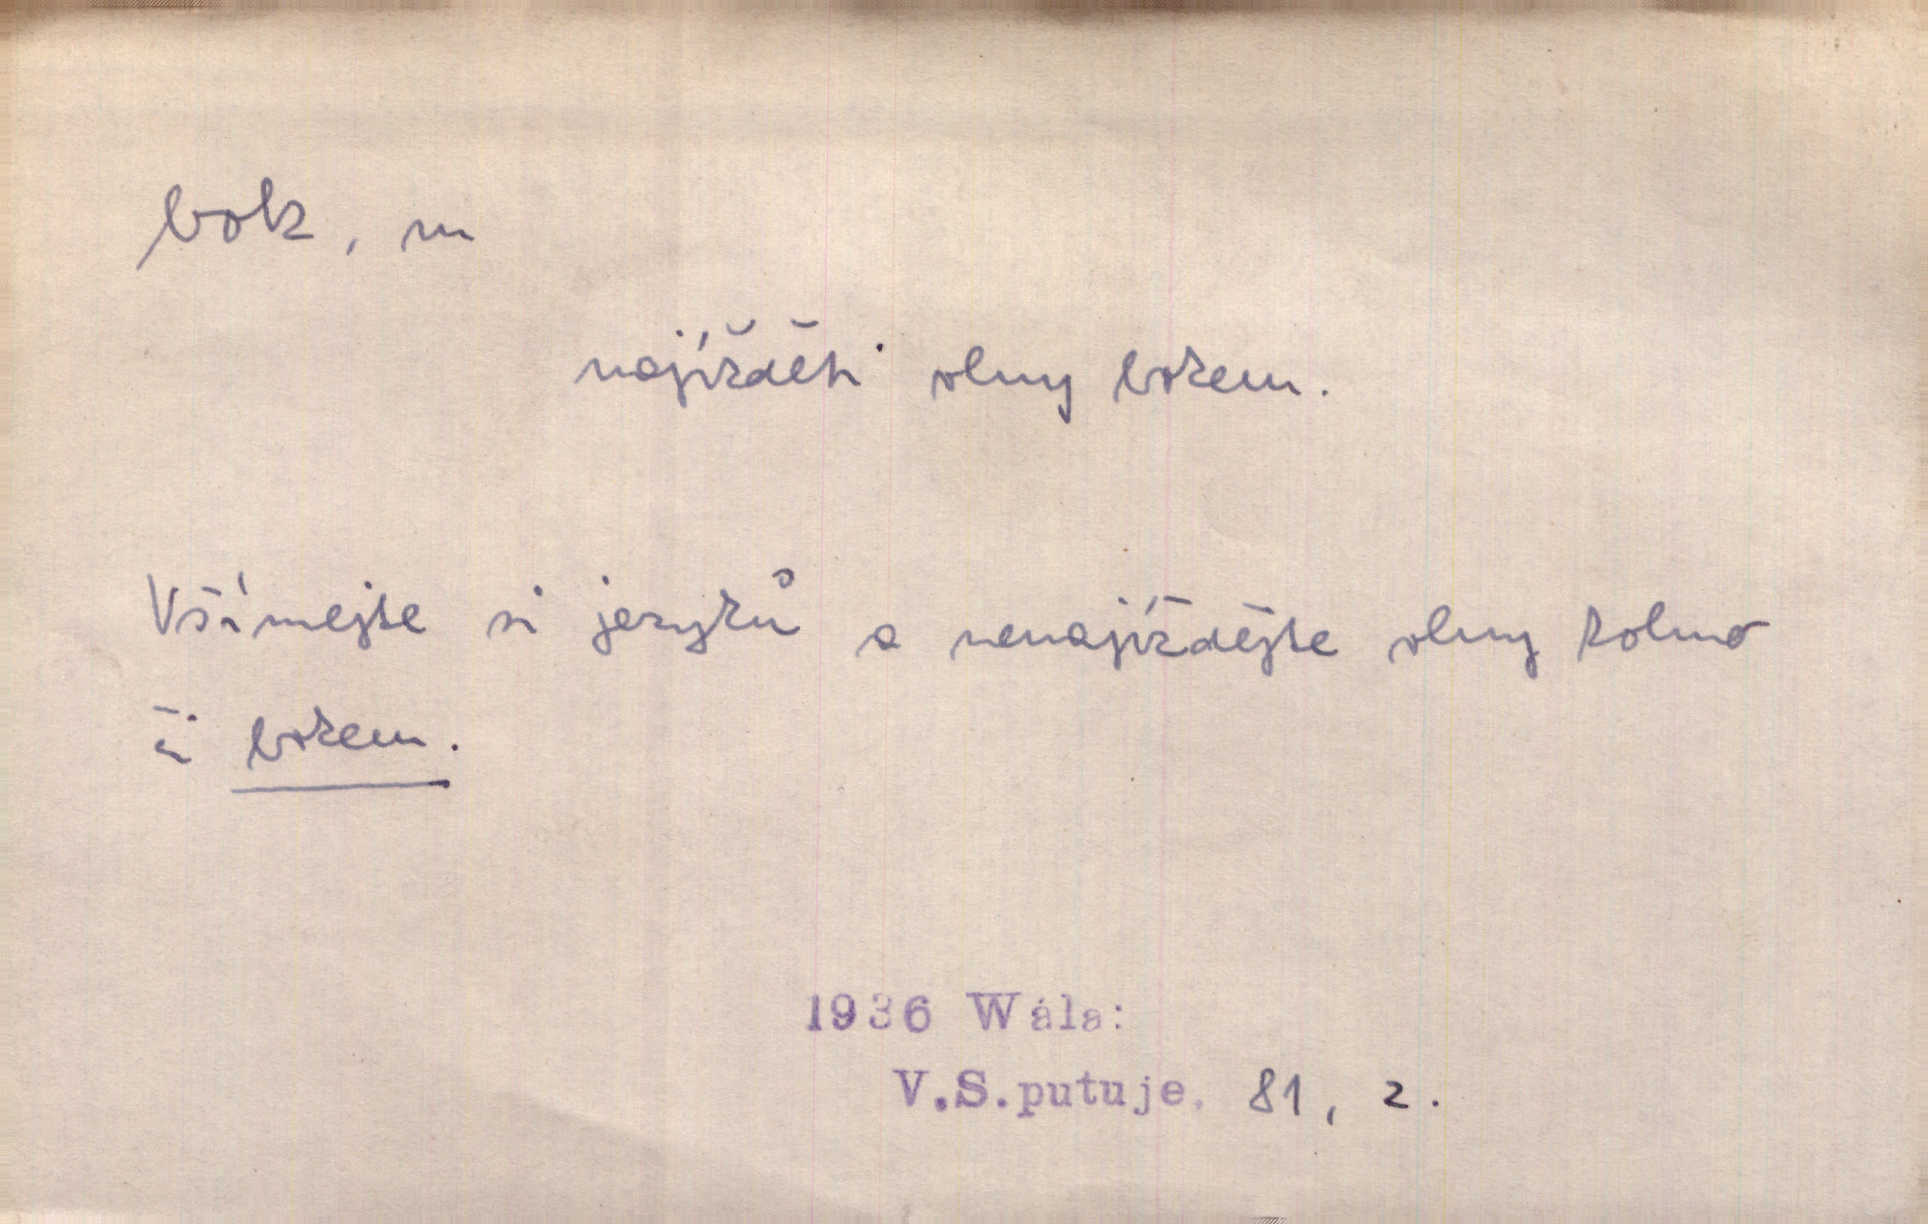 bok, m
najížděti vlny bokem.
Všímejte si jazyků a nenajíždějte vlny kolmo
či bokem.
1936 Wála:
V.S.putuje. 81, 2.